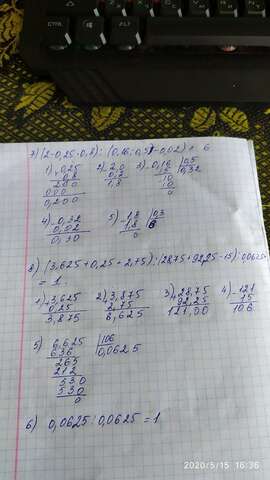 7) (2-0,25·0,8):(0,16:0,5-0,02)= 6
1) 0,25 2) 2,0 3) 0,16 0,5
0,8 0,2 15 0,32
200 1,8 10
000 10
0,200 0
4) 0,32 5) 1,8 0,3
0,02 1,8 6
0,30 0
8) (3,625+0,25+2,75):(28,75+92,25-15):0,0625
= 1
1) 3,625 2) 3,875 3) 28,75 4) 121
0,25 2,75 92,25 15
3,875 6,625 121,00 106
5) 6,625 106
636 0,0625
265
212
530
530
0
6) 0,0625:0,0625=1
2020/5/15 16:36